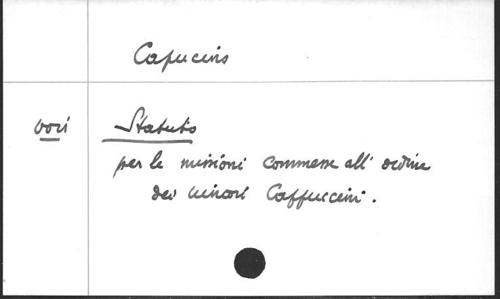 Capucins
voir Statuto
per le missioni commesse all' ordine
dei minori Cappuccini.